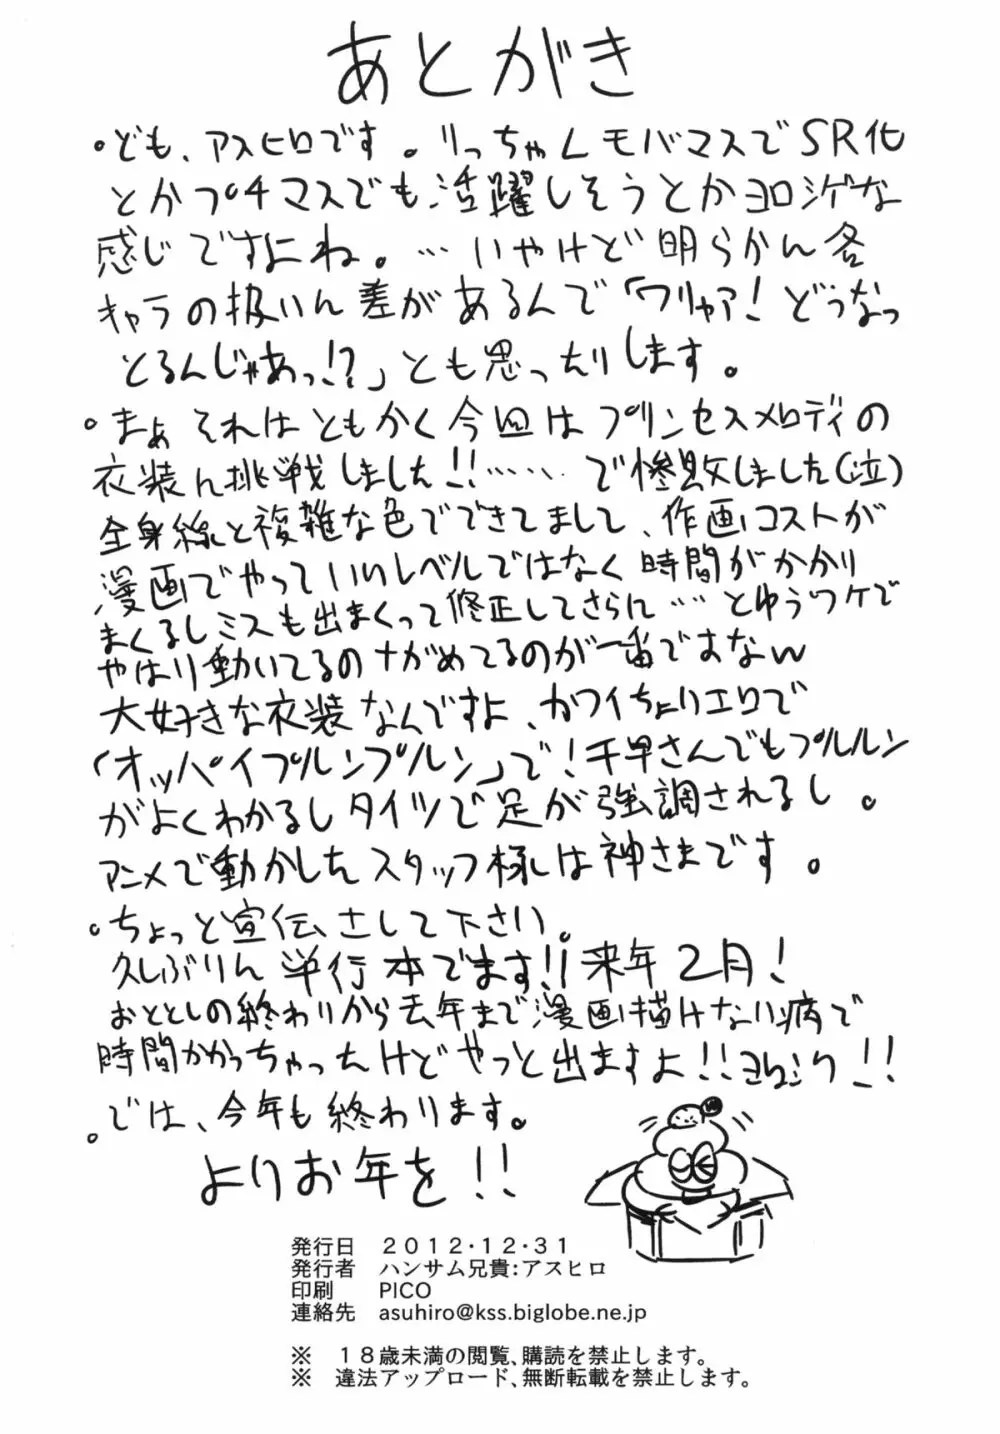 あとがき
・ども、アスヒロです。りっちゃんモバマスでSR化
とかプチマスでも活躍しそうとかヨロシゲな
感じですよね。…いやけど明らかん各
キャラの扱いん差があるんで「ワリャア！どうなっ
とるんじゃあっ!?」とも思ったりします。
・まぁそれはともかく今回はプリンセスメロディの
衣装ん挑戦しました!!……で惨敗しました(泣)
全身線と複雑な色でできてまして、作画コストが
漫画でやっていいレベルではなく時間がかかり
まくるしミスも出まくって修正してさらに…とゆうワケで
やはり動いてるのナがめてるのが一番ですなんw
大好きな衣装なんですよ、カワイちょりエロで
「オッパイプルンプルン」で！千早さんでもプルルン
がよくわかるしタイツで足が強調されるし。
アニメで動かしたスタッフ様は神さまです。
・ちょっと宣伝さして下さい。
久しぶりん単行本でます!!来年2月！
おととしの終わりから去年まで漫画描けない病で
時間かかっちゃったけどやっと出ますよ!!ヨロシク!!
・では、今年も終わります。
よりお年を!!
発行日 ２０１２・１２・３１
発行者 ハンサム兄貴：アスヒロ
印刷 PICO
連絡先 asuhiro@kss.biglobe.ne.jp
※ １８歳未満の閲覧、購読を禁止します。
※ 違法アップロード、無断転載を禁止します。